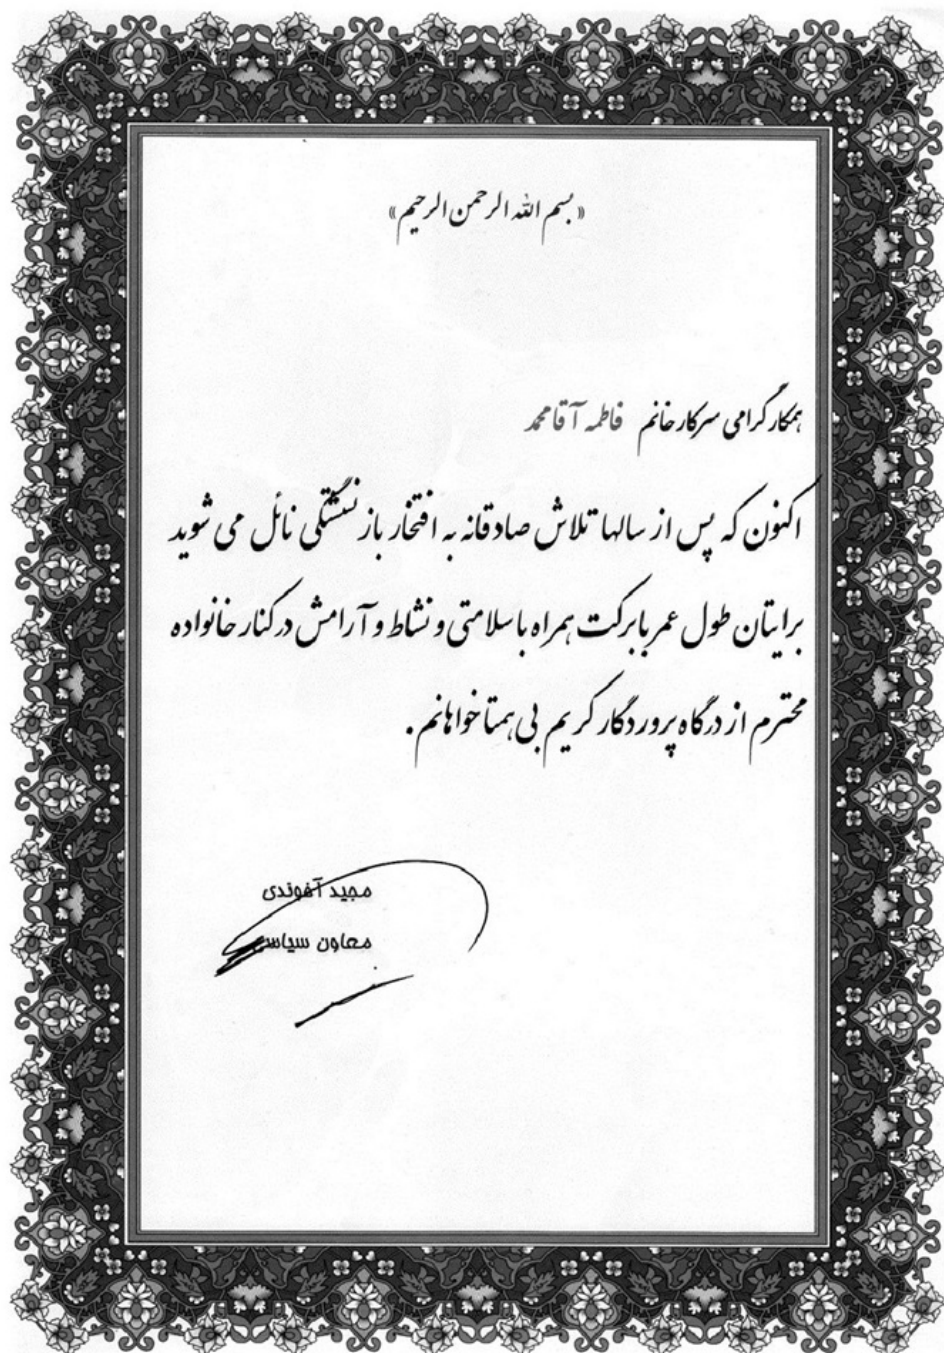 «بسم الله الرحمن الرحیم»
همکار گرامی سرکار خانم فاطمه آقامحمد
اکنون که پس از سالها تلاش صادقانه به افتخار بازنشستگی نائل می شوید
برایتان طول عمر بابرکت همراه با سلامتی و نشاط و آرامش در کنار خانواده
محترم از درگاه پروردگار کریم بی همتا خواهانم.
مجید آخوندی
معاون سیاسی